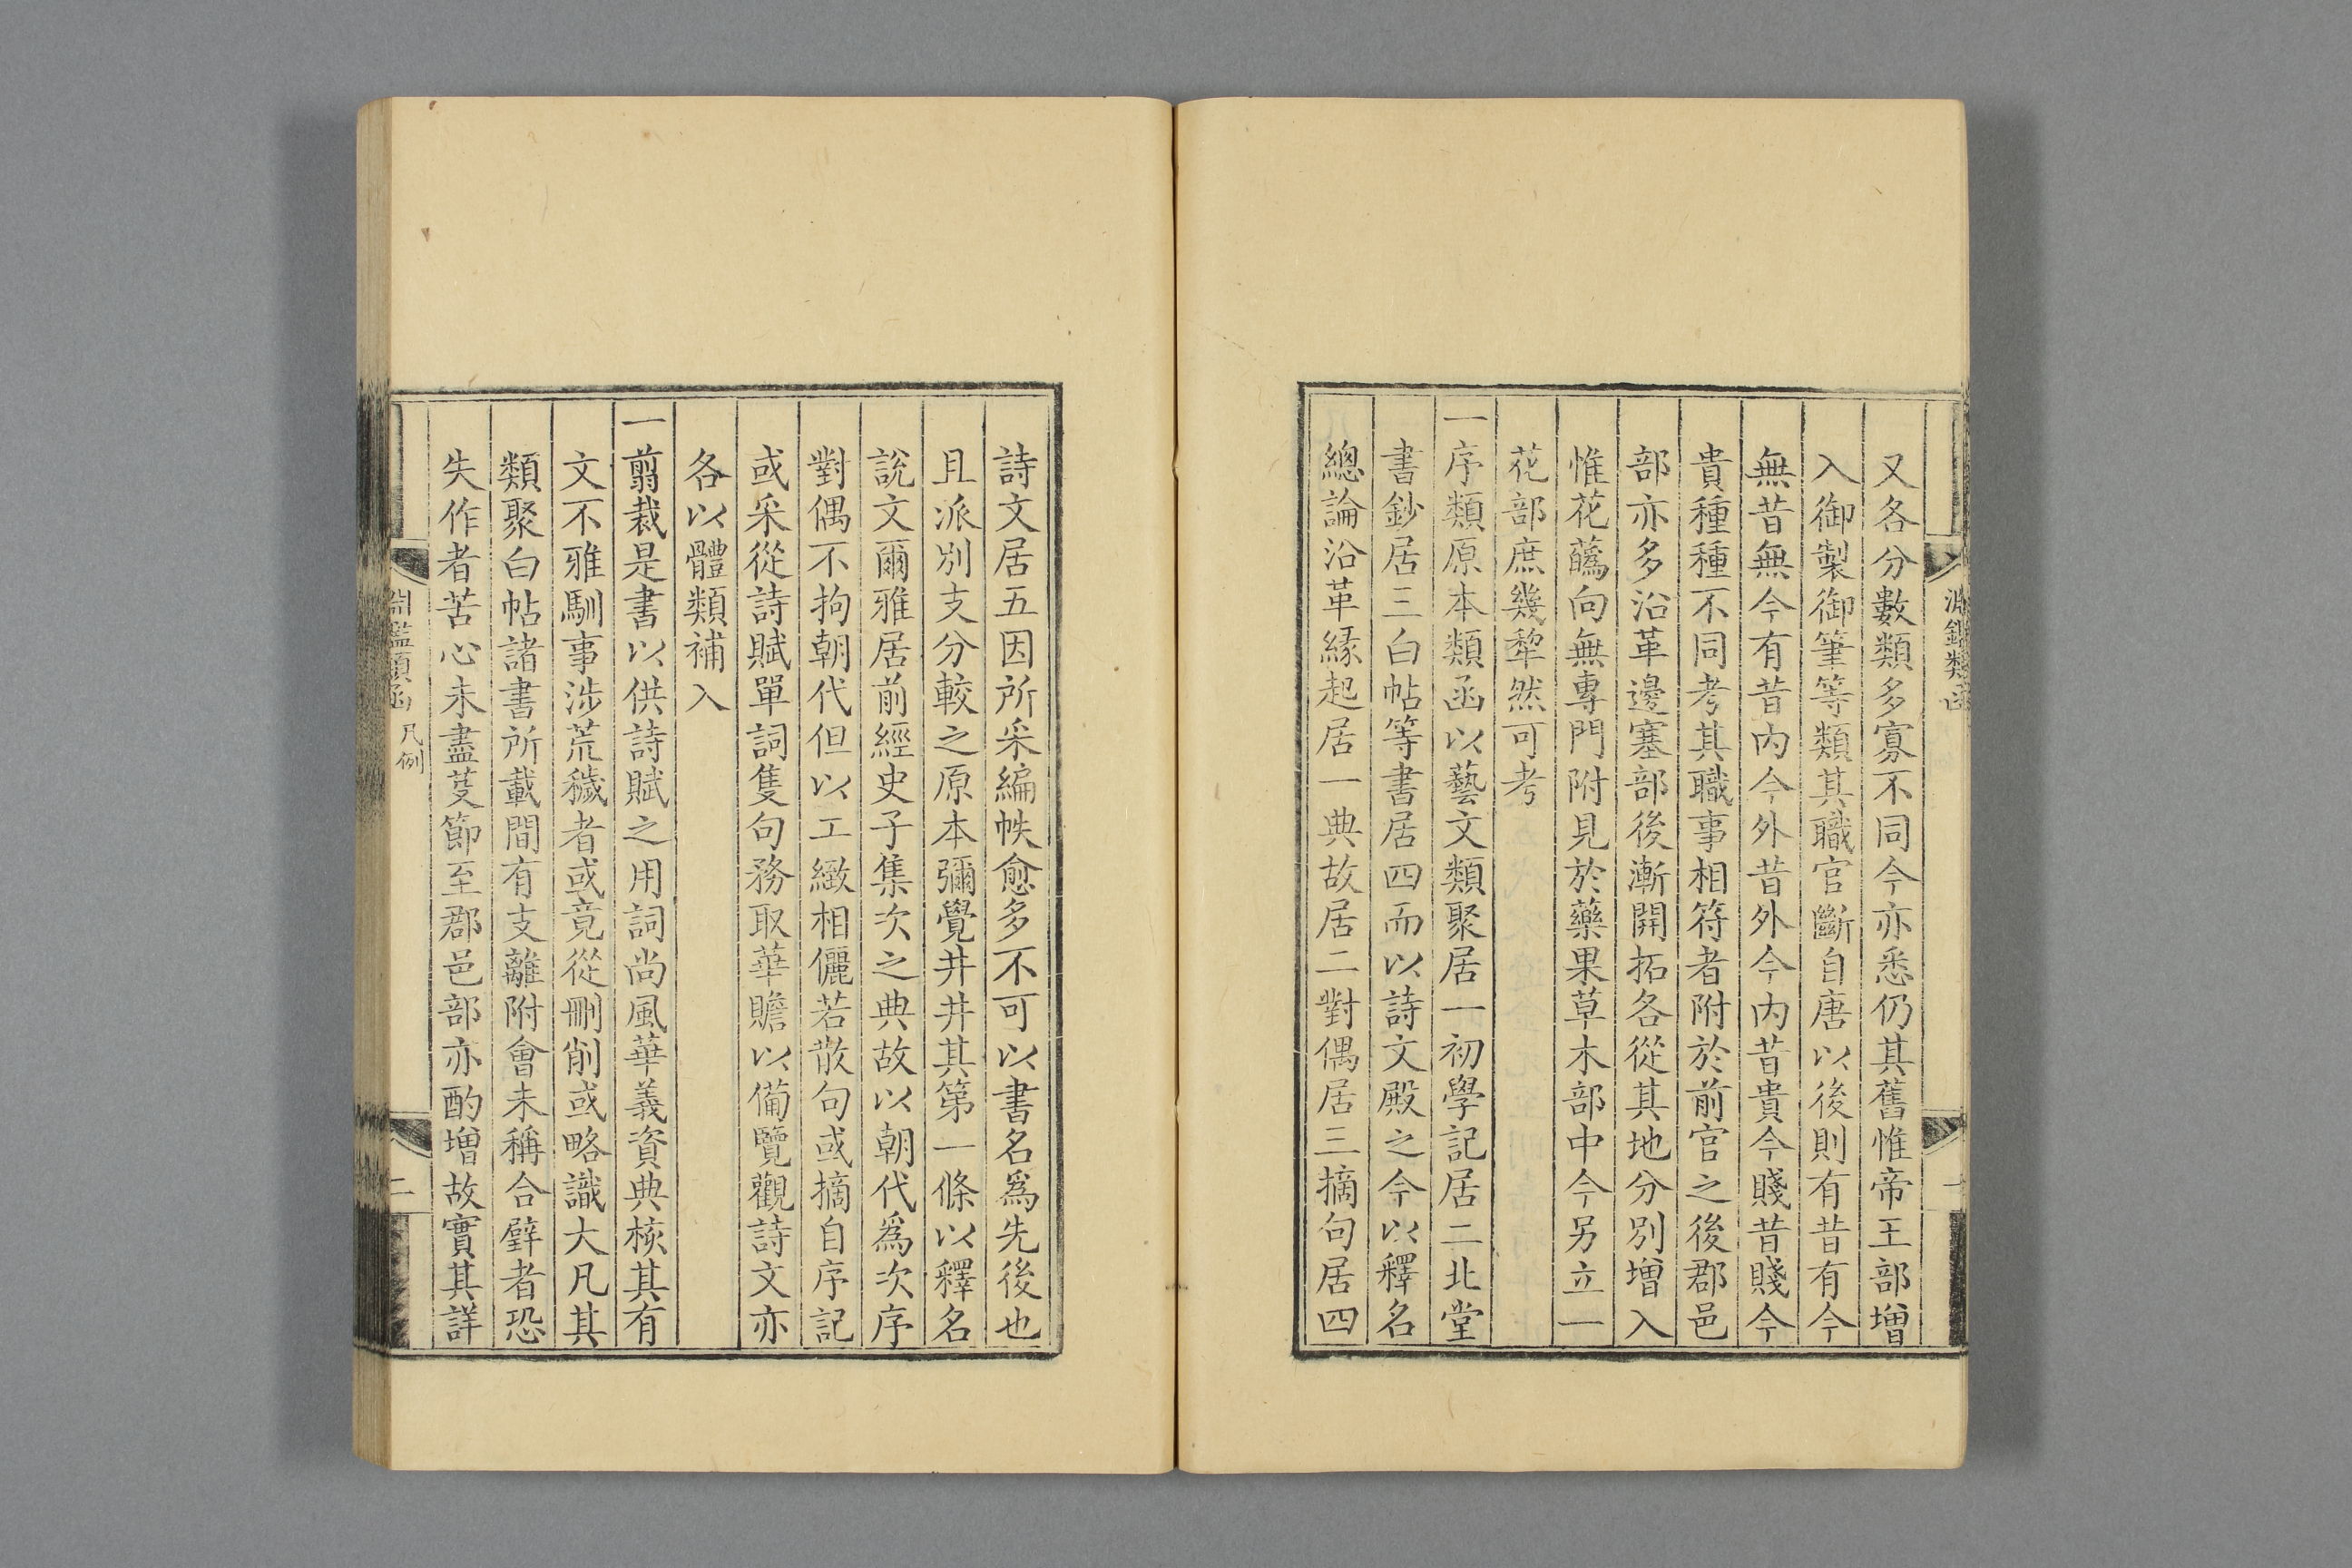 淵鑑類函
一
又各分數類多寡不同今亦悉仍其舊惟帝王部增
入御製御筆等類其職官斷自唐以後則有昔有今
無昔無今有昔内今外昔外今内昔貴今賤昔賤今
貴種種不同考其職事相符者附於前官之後郡邑
部亦多沿革邊塞部後漸開拓各從其地分別增入
惟花蘤向無專門附見於藥果草木部中今另立一
花部庶幾犂然可考
一序類原本類函以藝文類聚居一初學記居二北堂
書鈔居三白帖等書居四而以詩文殿之今以釋名
總論沿革緣起居一典故居二對偶居三摘句居四
詩文居五因所采編帙愈多不可以書名爲先後也
且派別支分較之原本彌覺井井其第一條以釋名
說文爾雅居前經史子集次之典故以朝代爲次序
對偶不拘朝代但以工緻相儷若散句或摘自序記
或采從詩賦單詞隻句務取華贍以備覽觀詩文亦
各以體類補入
一翦裁是書以供詩賦之用詞尚風華義資典核其有
文不雅馴事涉荒穢者或竟從刪削或略識大凡其
類聚白帖諸書所載間有支離附會未稱合璧者恐
失作者苦心未盡芟節至郡邑部亦酌增故實其詳
淵鑑類函 凡例
二